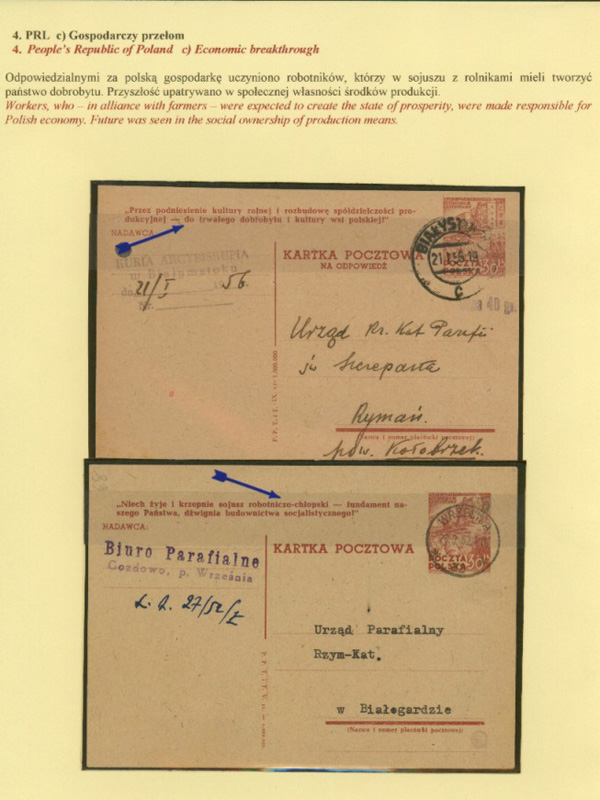 4. PRL c) Gospodarczy przełom
4. People's Republic of Poland c) Economic breakthrough
Odpowiedzialnymi za polską gospodarkę uczyniono robotników, którzy w sojuszu z rolnikami mieli tworzyć
państwo dobrobytu. Przyszłość upatrywano w społecznej własności środków produkcji.
Workers, who – in alliance with farmers – were expected to create the state of prosperity, were made responsible for
Polish economy. Future was seen in the social ownership of production means.
„Przez podniesienie kultury rolnej i rozbudowę spółdzielczości pro-
dukcyjnej — do trwałego dobrobytu i kultury wsi polskiej!"
NADAWCA:
KURIA ARCYBISKUPIA
w Białymstoku
21/I 56.
Nr.
KARTKA POCZTOWA
NA ODPOWIEDŹ
BIAŁYSTOK
C
POCZTA
POLSKA
40 gr.
Urząd Rz. Kat Parafii
Ryman.
(Nazwa i numer placówki pocztowej)
pow. Kołobrzek.
„Niech żyje i krzepnie sojusz robotniczo-chłopski — fundament na-
szego Państwa, dźwignia budownictwa socjalistycznego!"
NADAWCA:
Biuro Parafialne
Gozdowo, p. Września
27/52/I
KARTKA POCZTOWA
WRZEŚNIA
POCZTA
POLSKA 30
Urząd Parafialny
Rzym-Kat.
w Białogardzie
(Nazwa i numer placówki pocztowej)